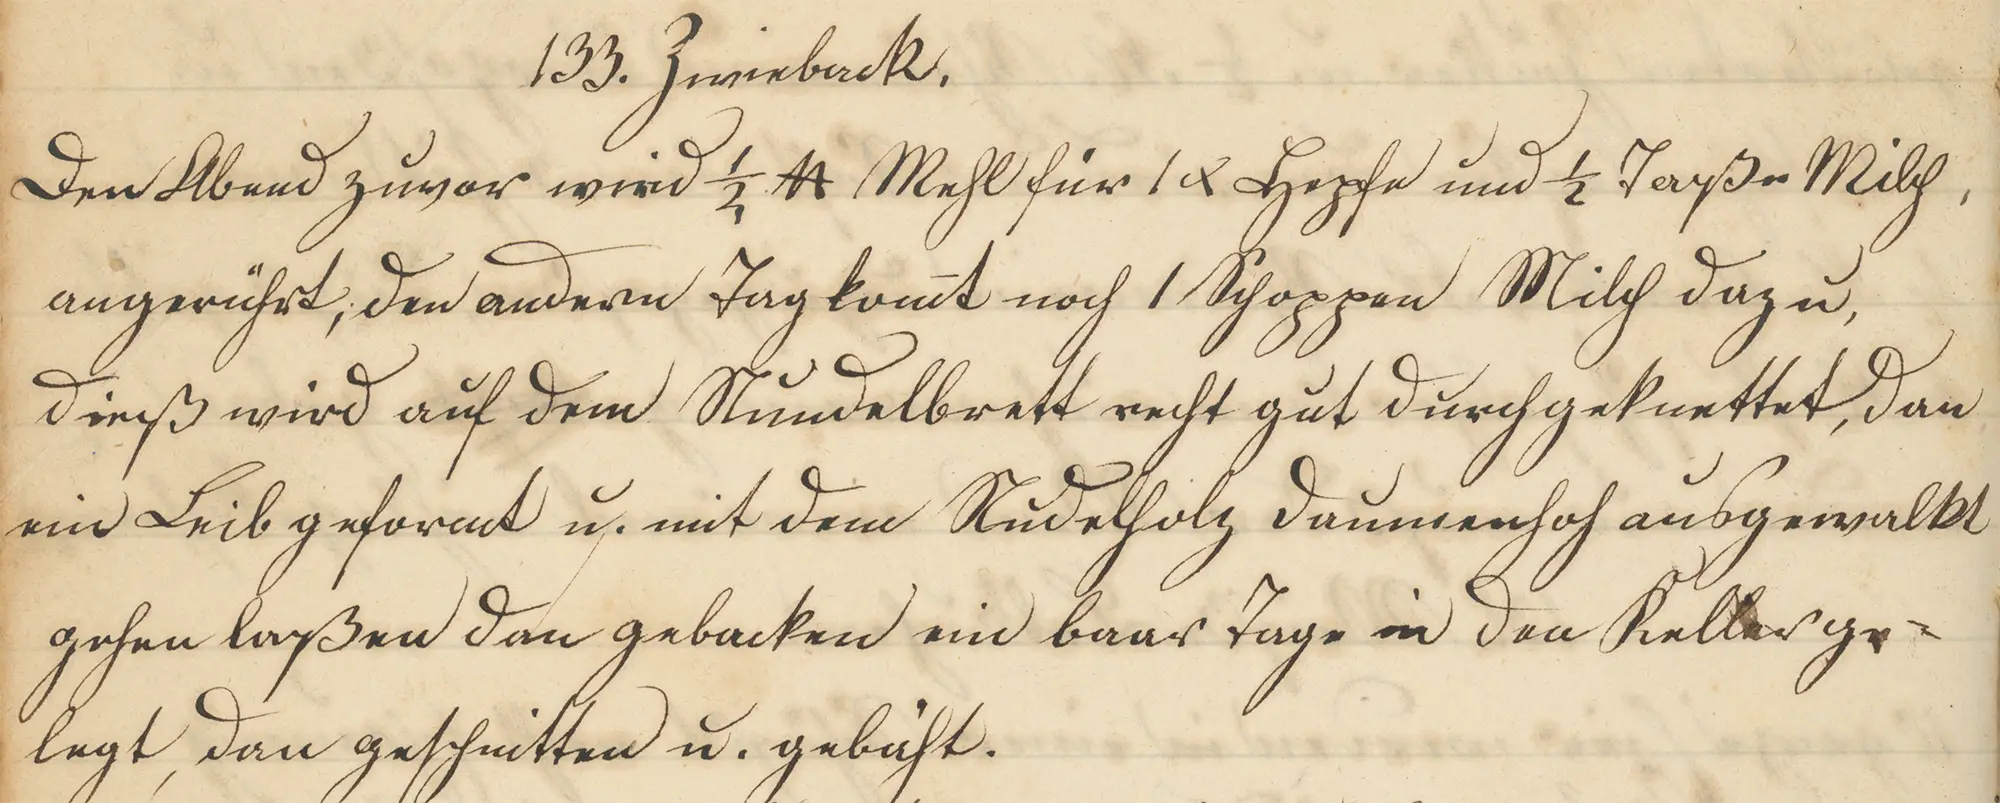 133. Zwieback.
Den Abend zuvor wird ½ ℔ Mehl für 1 x Hepfe und ½ Taße Milch,
angerührt, den andern Tag kom̅t noch 1 Schoppen Milch dazu,
dieß wird auf dem Nundelbrett recht gut durchgeknettet, dan
ein Leib geformt u. mit dem Nudelholz daumenhoh ausgewalkt
gehen laßen dan gebacken ein baar Tage in den Keller ge-
legt, dan geschnitten u. gebäht.